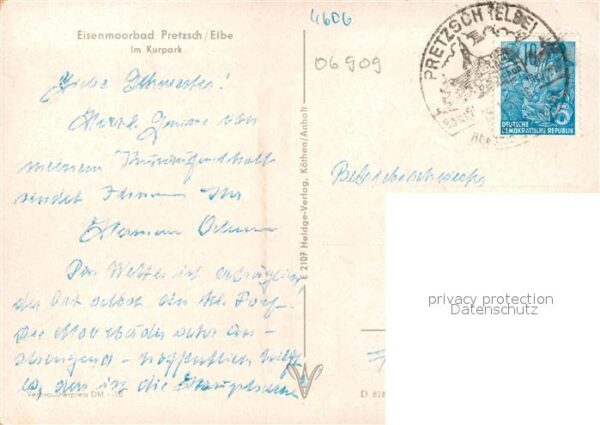 Eisenmoorbad Pretzsch/Elbe
Im Kurpark
4606
06909
PRETZSCH (ELBE)
10
5
DEUTSCHE
DEMOKRATISCHE REPUBLIK
Liebe Schwester!
Herzl. Grüsse von
meinem Kuraufenthalt
sendet Ihnen Ihr
Hermann
Das Wetter ist erträglich
der Ort selbst ein
Die Moorbäder sehr an-
strengend - hoffentlich hilft
es, das ist die Hauptsache
Verbraucherpreis DM -.10
E 2107 Heldge-Verlag, Köthen/Anhalt
Betriebsschwester
privacy protection
Datenschutz
D 828